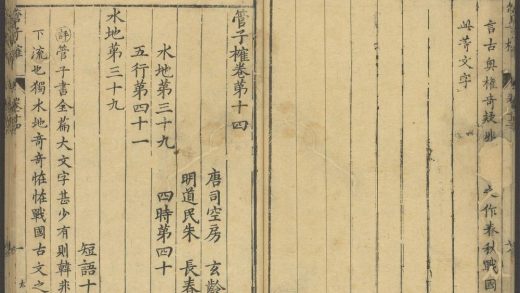 言古奧權奇疑非 作春秋戰國
此等文字
管子榷卷第十四
唐司空房 玄齡
明道民朱 長春
水地第三十九 四時第四十
五行第四十一
短語十
水地第三十九
評管子書全篇大文字甚少有則韓非
下流也獨水地奇奇怪怪戰國古文之
管子榷 卷十四 一